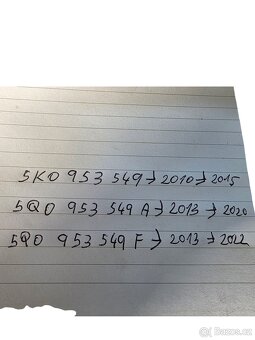 5K0 953 549 → 2010 → 2015
5Q0 953 549 A → 2013 → 2020
5Q0 953 549 F → 2013 → 2022
Bazos.cz